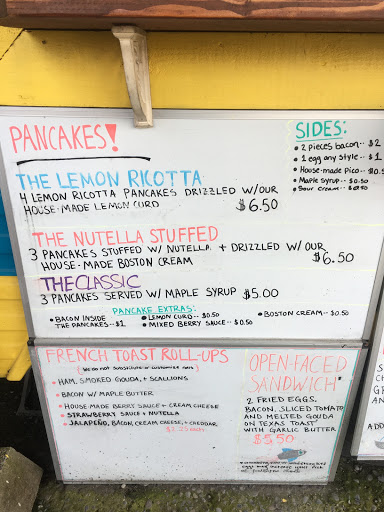 PANCAKES!
THE LEMON RICOTTA
4 LEMON RICOTTA PANCAKES DRIZZLED W/OUR
HOUSE-MADE LEMON CURD $6.50
THE NUTELLA STUFFED
3 PANCAKES STUFFED W/ NUTELLA + DRIZZLED W/ OUR
HOUSE-MADE BOSTON CREAM $6.50
THE CLASSIC
3 PANCAKES SERVED W/ MAPLE SYRUP $5.00
PANCAKE EXTRAS:
• BACON INSIDE
THE PANCAKES -- $1
• LEMON CURD -- $0.50
• MIXED BERRY SAUCE -- $0.50
• BOSTON CREAM -- $0.50
SIDES:
• 2 pieces bacon -- $2
• 1 egg any style -- $1
• House-made Pico -- $0.5
• Maple syrup -- $0.50
• Sour cream -- $0.50
FRENCH TOAST ROLL-UPS
• HAM, SMOKED GOUDA, + SCALLIONS
• BACON W/ MAPLE BUTTER
• HOUSE-MADE BERRY SAUCE + CREAM CHEESE
• STRAWBERRY SAUCE + NUTELLA
• JALAPEÑO, BACON, CREAM CHEESE, + CHEDDAR
OPEN-FACED
SANDWICH*
2 FRIED EGGS,
BACON, SLICED TOMATO
AND MELTED GOUDA
ON TEXAS TOAST
WITH GARLIC BUTTER
$5.50